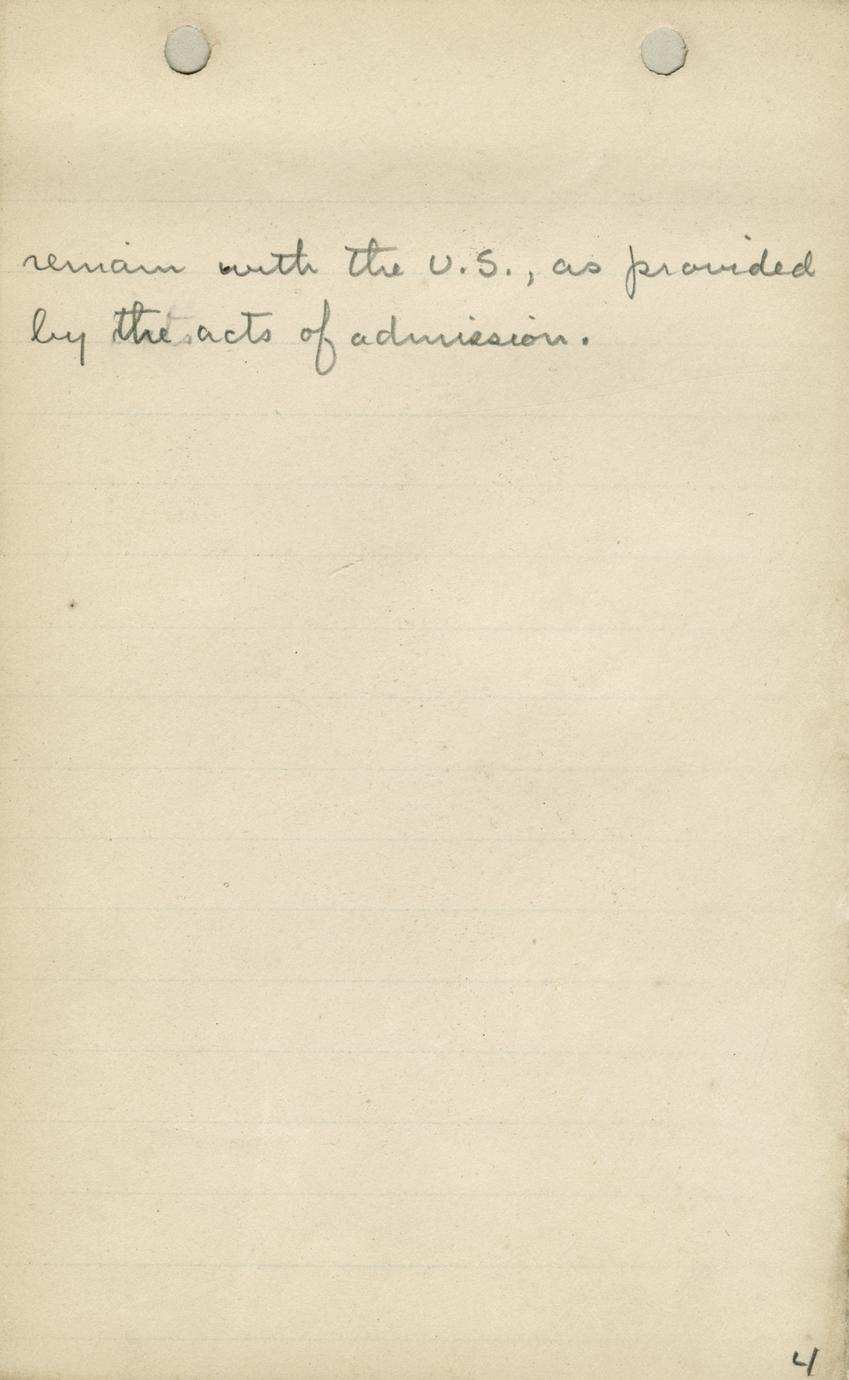 remain with the U.S., as provided
by the acts of admission.
4